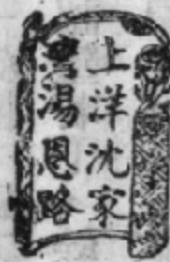 上洋沈家
灣湯恩路